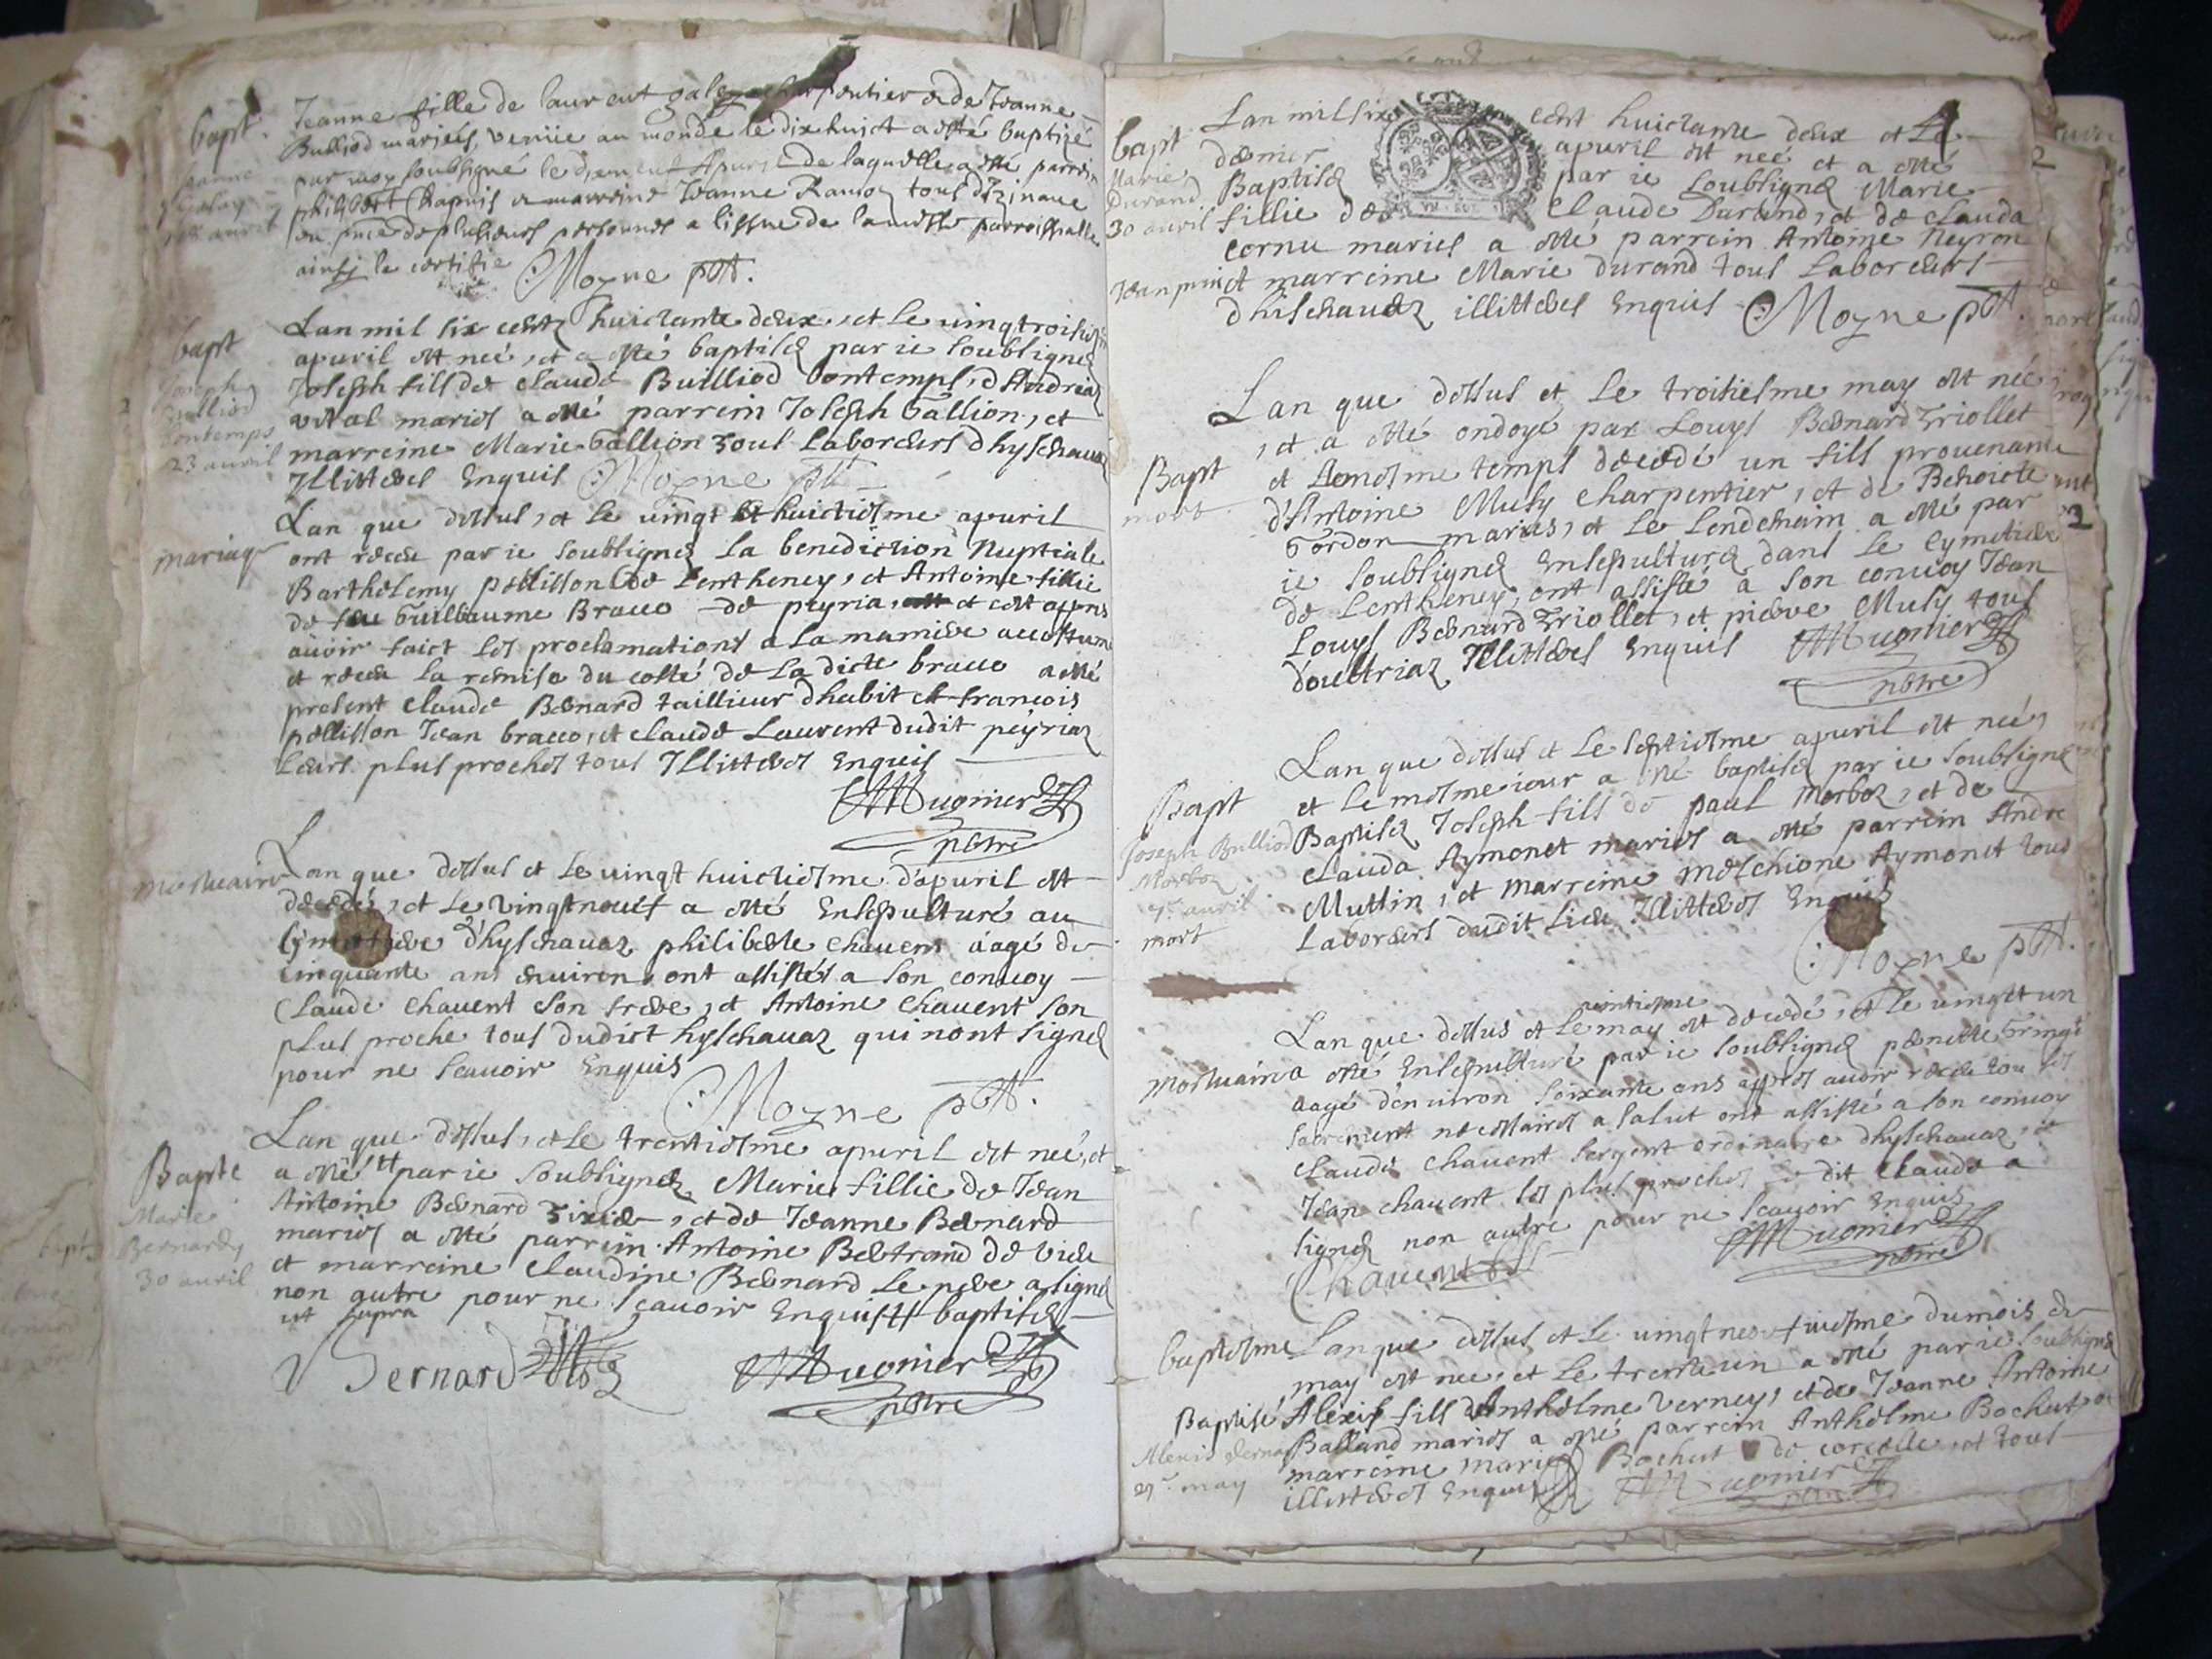 bapt. Jeanne fille de laurent charpentier & de Jeanne
Bulliod mariés, venüe au monde le dixhuict a esté baptizé
par moy soubsigné le de laquelle a esté parrein
philibert Chapuis & marreine Jeanne Ramoz tous
en plusieurs personnes a lissue de la messe parroissialle
ainsy le certifie Moyne pbt.
bapt
Joseph
Bulliod
Bontemps
23 avril
Lan mil six centz huictante deux, et le vingtroisie
apuril est neé, et a esté baptisé par ie soubsigné
Joseph fils de Claude Builliod bontemps, d'Andrea
vital mariés a esté parrein Joseph Gallion, et
marreine Marie Gallion tous Laboreurs dhyschauaz
Illitterés Enquis Moyne pbt
mariage
Lan que dessus, et le uingt et huictiesme apuril
ont receu par ie soubsigné La benediction Nuptiale
Barthelemy pellisson de Lentheney, et Antoine fillie
de feu Guilbaume Bracco de peyria, et ce apres
auoir faict les proclamations a la maniere accostume
et receu la remise du costé de La dicte bracco a esté
present Claude Bernard taillieur dhabit et francois
pellisson Jean bracco, et Claude Laurent dudit peyriaz
Leurs plus proches tous Illitterés Enquis
Mugnier
pbtre
mortuaire
Lan que dessus et le uingt huictiesme d'apuril est
decedé, et le vingtneuf a esté Ensepulturé au
cymetiere d'hyschauaz philiberte Chauent aagé de
cinquante ans enuiron, ont assistés a son conuoy
Claude Chauent son frere, et Antoine Chauent son
plus proche tous dudict hyschauaz qui nont signé
pour ne scauoir Enquis
Moyne pbt.
Bapte
Marie
Bernard
30 auril
Lan que dessus, et le trentiesme apuril est neé, et
a esté # par ie soubsigné, Marie fillie de Jean
Antoine Bernard, et de Jeanne Bernard
mariés a esté parrein Antoine Bertrand de
et marreine Claudine Bernard Le pere a signé
non autre pour ne scauoir Enquis # baptisé
ut supra
Bernard Mugnier
pbtre
bapt
Marie
Durand
30 auril
Lan mil six cent huictante deux et Le
dernier apuril est neé et a esté
Baptisé par ie soubsigné Marie
fillie de Claude Durand, et de Clauda
cornu mariés a esté parrein Antoine Neyron
et marreine Marie Durand tous Laboreurs
dhischauaz illitterés Enquis Moyne pbt.
Bapt
mort
Lan que dessus et Le troisiesme may est né
, et a esté ondoyé par Louys Bernard Triollet
et Lemesme temps decedé un fils prouenant
d'Antoine Musy charpentier, et de Benoicte
Gordon mariés, et Le Lendemain a esté par
ie soubsigné Ensepulturé dans Le Cymetiere
de Lentheney, ont assisté a son conuoy Jean
Louys Bernard Triollet, et pierre Musy tous
d'oultriaz Illitterés Enquis Mugnier
pbtre
Bapt
Joseph Bulliod
Morboz
7e auril
mort
Lan que dessus et Le septiesme apuril est neé,
et Le mesme iour a esté baptisé par ie soubsigné
Baptisé Joseph fils de paul Morboz, et de
Clauda Aymonet mariés a esté parrein André
Muttin, et marreine Melchione Aymonet tous
Laboreurs dudit Lieu Illitterés Enquis
Moyne pbt.
mortuaire
Lan que dessus et Le uintiesme may est decedé, et Le uingtt un
a esté Ensepulturé par ie soubsigné pernette Gringe
aagé denuiron soixante ans appres auoir receu tou les
sacrement necessaires a salut ont assisté a son conuoy
Claude Chauent sergent ordinaire dhyschauaz, et
Jean Chauent les plus proches Le dit Claude a
signé non autre pour ne scauoir Enquis
Chauent Mugnier
pbtre
baptesme
Baptisé
Alexis Vernay
29e may
Lan que dessus et Le uingtneufuiesme du mois de
may est nee, et Le trenteun a esté par ie soubsigné
Alexis fils d'Anthelme Verney, et de Jeanne Antoine
Balland mariés a esté parrein Anthelme Bochut et
marreine Marie Bochut de corcelle, et tous
illitterés Enquis Mugnier